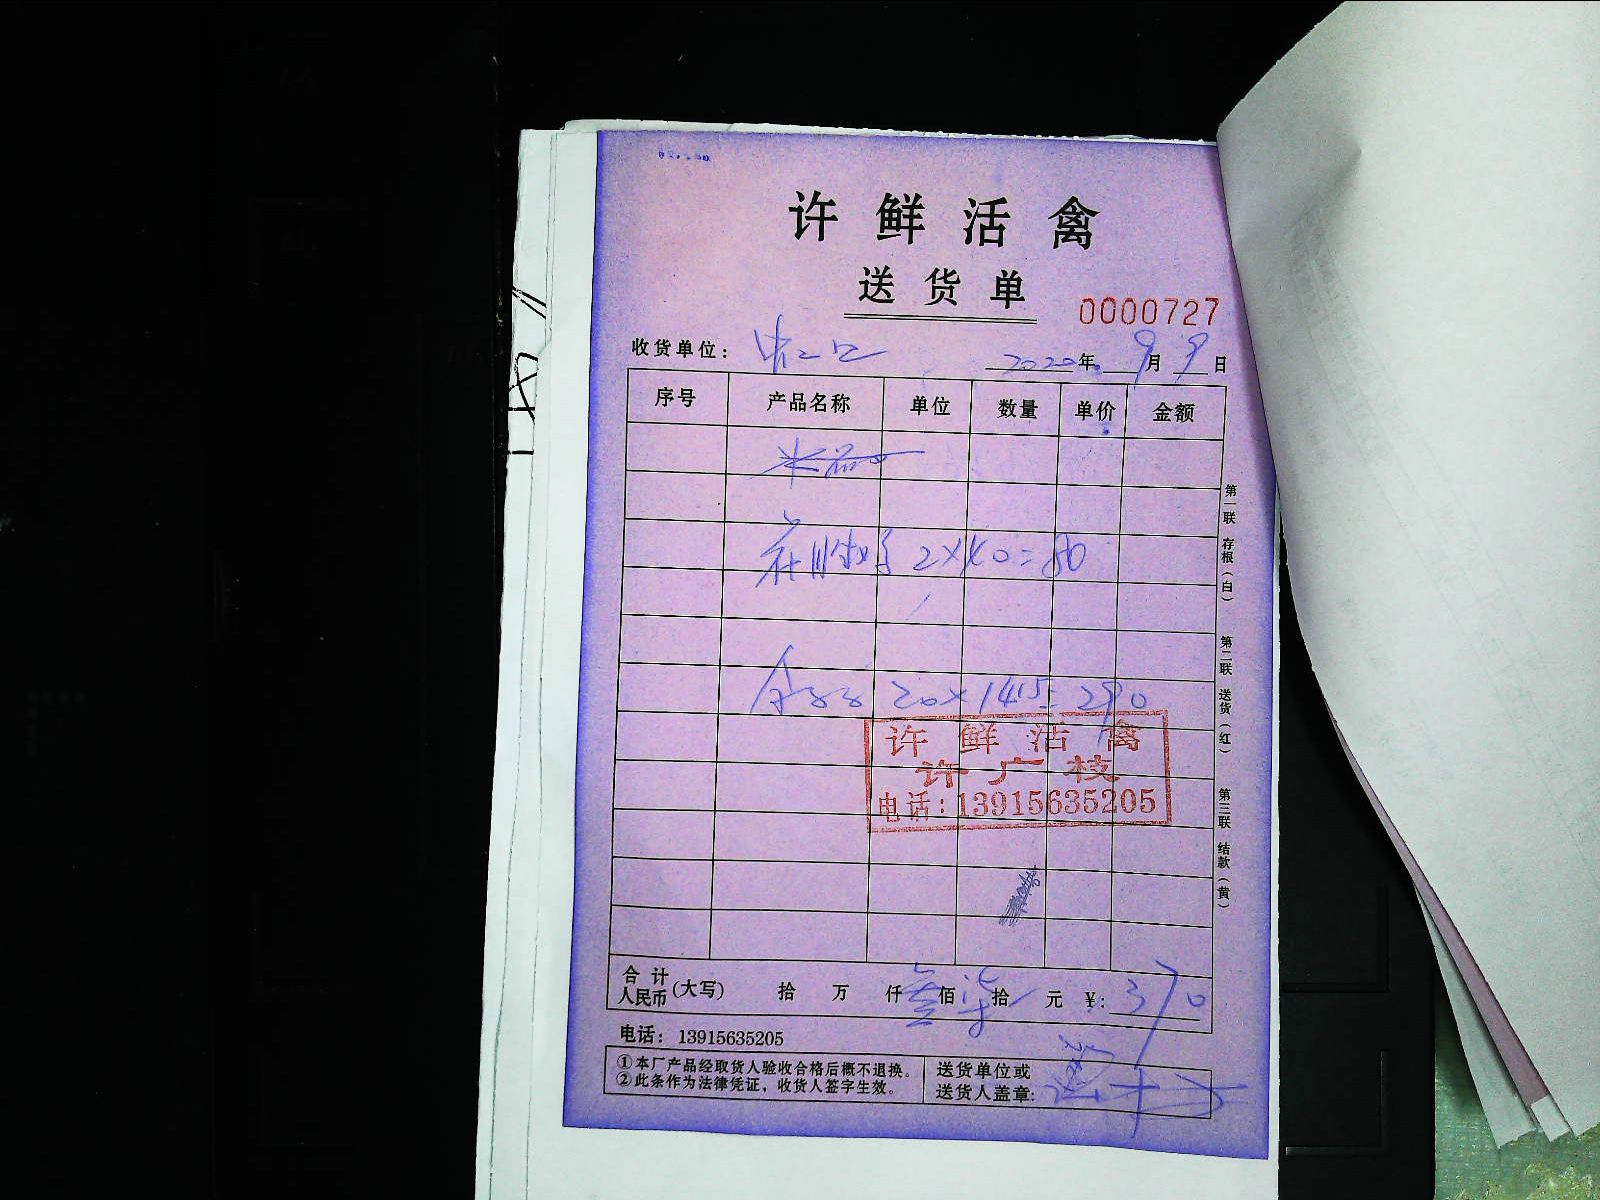 许鲜活禽
送货单
0000727
收货单位: 虹口 2020年 9月 9日
序号 产品名称 单位 数量 单价 金额
2×40=80
20×14.5=290
许鲜活禽
许广枝
电话:13915635205
合计人民币(大写) 拾 万 仟 叁佰 柒拾 元 ¥: 370
电话: 13915635205
①本厂产品经取货人验收合格后概不退换。
②此条作为法律凭证，收货人签字生效。
送货单位或
送货人盖章:
第一联 存根(白) 第二联 送货(红) 第三联 结款(黄)